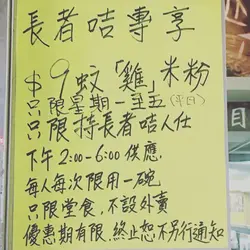 長者咭專享
$9蚊「雞」米粉
只限星期一至五(平日)
只限持長者咭人仕
下午2:00-6:00供應
每人每次限用一碗
只限堂食，不設外賣
優惠期有限，終止恕不另行通知